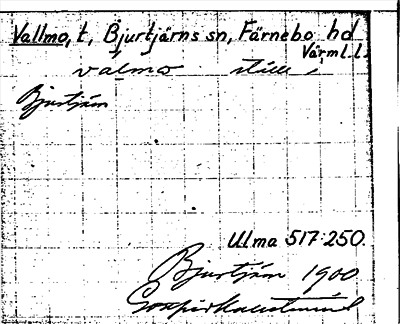 Vallmo, t, Bjurtjärns sn, Färnebo hd
Värml. l.
valmo
Bjurtjärn
Ulma 517:250.
Bjurtjärn 1900